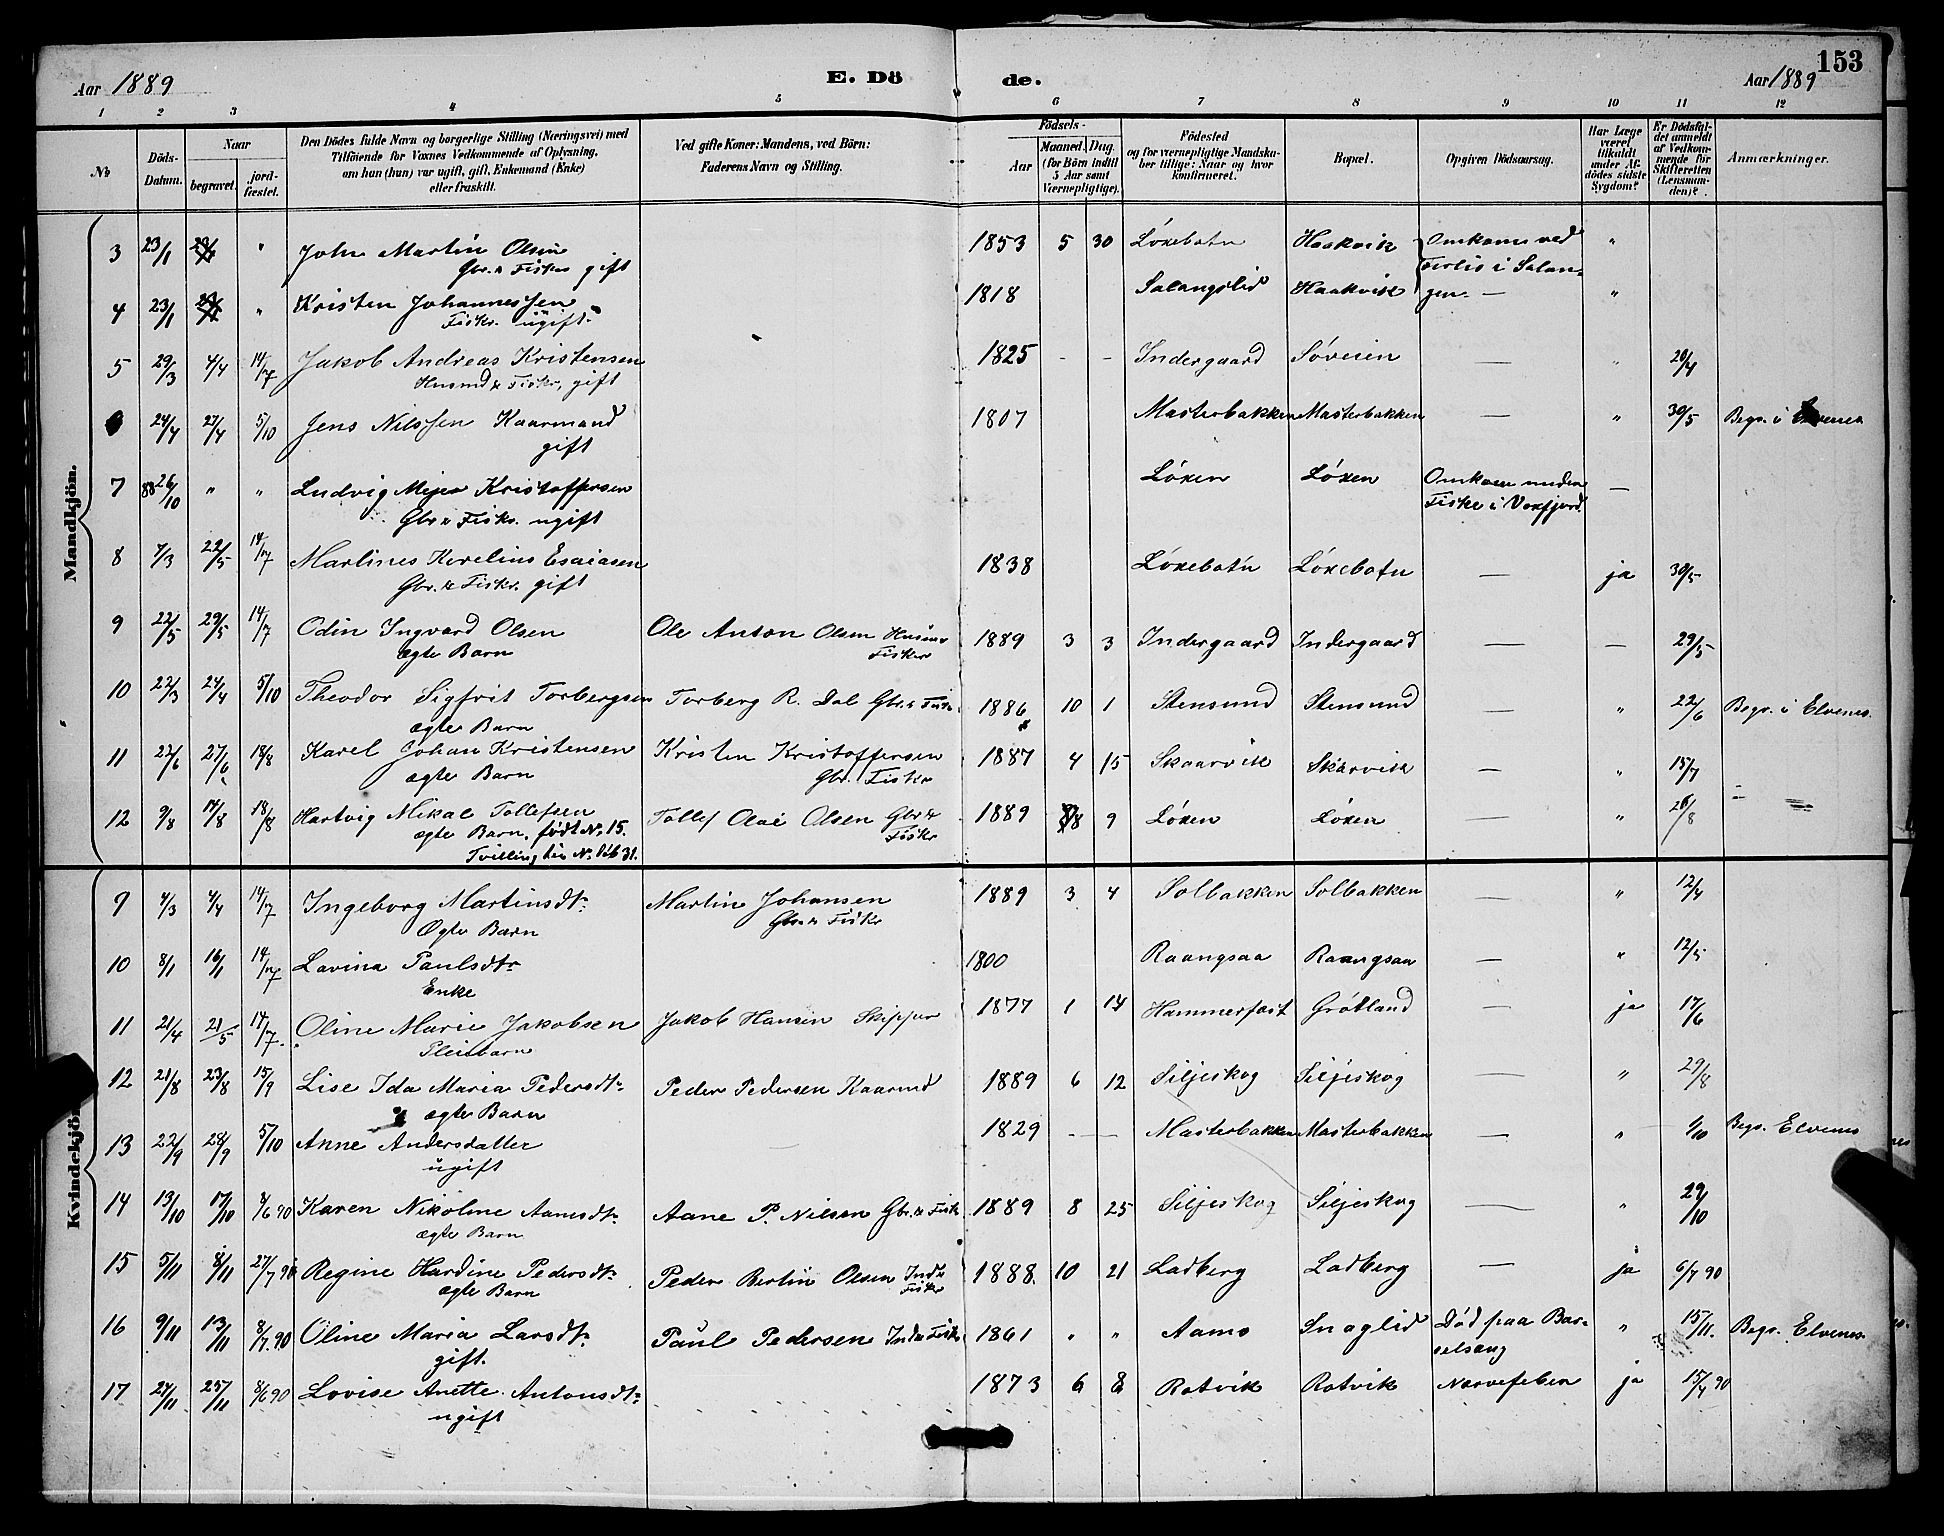 153
Aar 1889 E. Dö de. Aar 1889
1 2 3 4 5 6 7 8 9 10 11 12
No Döds-Datum. Naar begravet. jord-fæstet. Den Dödes fulde Navn og borgerlige Stilling (Næringsvei) med Tilföiende for Voxnes Vedkommende af Oplysning, om han (hun) var ugift, gift, Enkemand (Enke) eller fraskilt. Ved gifte Koner: Mandens, ved Börn: Faderens Navn og Stilling. Födsels- Aar Maaned. Dag. (for Börn indtil 5 Aar samt Værnepligtige). Födested og for værnepligtige Mandskaber tillige: Naar og hvor konfirmeret. Bopæl. Opgiven Dödsaarsag. Har Læge været tilkaldt under Afdödes sidste Sygdom? Er Dödsfaldet anmeldt af Vedkommende for Skifteretten (Lensmanden)? Anmærkninger.
Mandkjön.
3 23/1 " John Martin Olsen 1853 5 30 Löxebotn Haakvik Omkom ved "
Gbr. & Fisker gift Forlis i Salan-
4 23/1 " Kristen Johannessen 1818 Salangslid Haakvik gen. — "
Fiskr. ugift
5 29/3 4/4 14/7 Jakob Andreas Kristensen 1825 - - Indergaard Söveien — " 20/4
Husmd & Fiskr, gift
24/4 27/4 5/10 Jens Nilssen Kaarmand 1807 Masterbakken Masterbakken — " 30/5 Begr. i Elvenes
gift
7 88 26/10 " " Ludvig Mejer Kristoffersen Löxen Löxen Omkom under —
Gbr & Fiskr. ugift Fiske i Voxfjord.
8 7/3 22/5 14/7 Martines Kerelius Esaiasen 1838 Löxebotn Löxebotn — ja 30/5
Gbr. & Fiskr. gift
9 22/5 29/5 14/7 Odin Ingvard Olsen Ole Anton Olsen 1889 3 3 Indergaard Indergaard — — 29/5
ægte Barn Fisker
10 22/3 24/4 5/10 Theodor Sigfrit Torbergsen Torberg R. Dal Gbr. & Fiskr 1886 10 1 Stensund Stensund — " 22/6 Begr. i Elvenes.
ægte Barn
11 22/6 27/6 18/8 Karel Johan Kristensen Kristen Kristoffersen 1887 4 15 Skaarvik Skarvik — " 15/7
ægte Barn Gbr. Fiskr
12 9/8 17/8 18/8 Hartvig Mikal Tollefsen Tollef Olai Olsen Gbr & 1889 8 9 Löxen Löxen " 26/8
ægte Barn, födt N. 15. Fiskr
Tvilling
Kvindekjön
9 4/3 4/4 14/7 Ingeborg Martinsdtr Martin Johansen 1889 3 4 Solbakken Solbakken — " 12/4
Ægte Barn Gbr. & Fiskr
10 8/1 16/1 14/7 Lavina Paulsdtr 1800 Raangsaa Raangsaa — " 12/5
Enke
11 21/4 21/5 14/7 Oline Marie Jakobsen Jakob Hansen Skipper 1877 1 14 Hammerfest Grötland — ja 17/6
Pleiebarn
12 21/8 23/8 15/9 Lise Ida Maria Pedersdtr Peder Pedersen Kaarmd 1889 6 12 Siljeskog Siljeskog — " 29/8
ægte Barn
13 22/9 28/9 5/10 Anne Andersdatter — 1829 — — Masterbakken Masterbakken — " 1/10 Begr. Elvenes
ugift
14 13/10 17/10 8/6 90 Karen Nikoline Aanesdtr Aane P. Nilsen Gbr. & Fiskr 1889 8 25 Siljeskog Siljeskog — " 29/10
ægte Barn
15 5/11 8/11 27/7 90 Regine Hardine Pedersdtr Peder Bertin Olsen Ind & 1888. 10 21 Ladberg Ladberg — ja 6/7 90
ægte Barn Fiskr
16 9/11 13/11 8/7 90 Oline Maria Larsdtr Paul Pedersen Ind & Fiskr 1861 " " Aamo Snaglid Död paa Bar- " 15/11. Begr. Elvenes
gift. selseng
17 24/11 25/11 8/6 90 Lovise Anette Antonsdtr 1873 6 8 Rotvik Rotvik Nervefeber ja 15/4 90
ugift